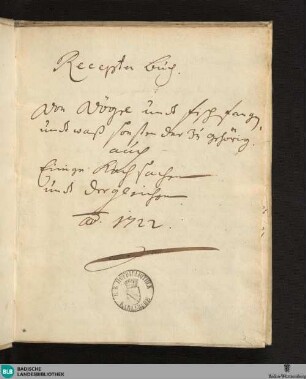 Recepten büch.
Von Vögel undt fischfang,
undt waß sonsten dar zu gehörig.
auch
Einige Kochsachen
undt dergleichen
Aō. 1722.
BLB
BADISCHE
LANDESBIBLIOTHEK
Baden-Württemberg